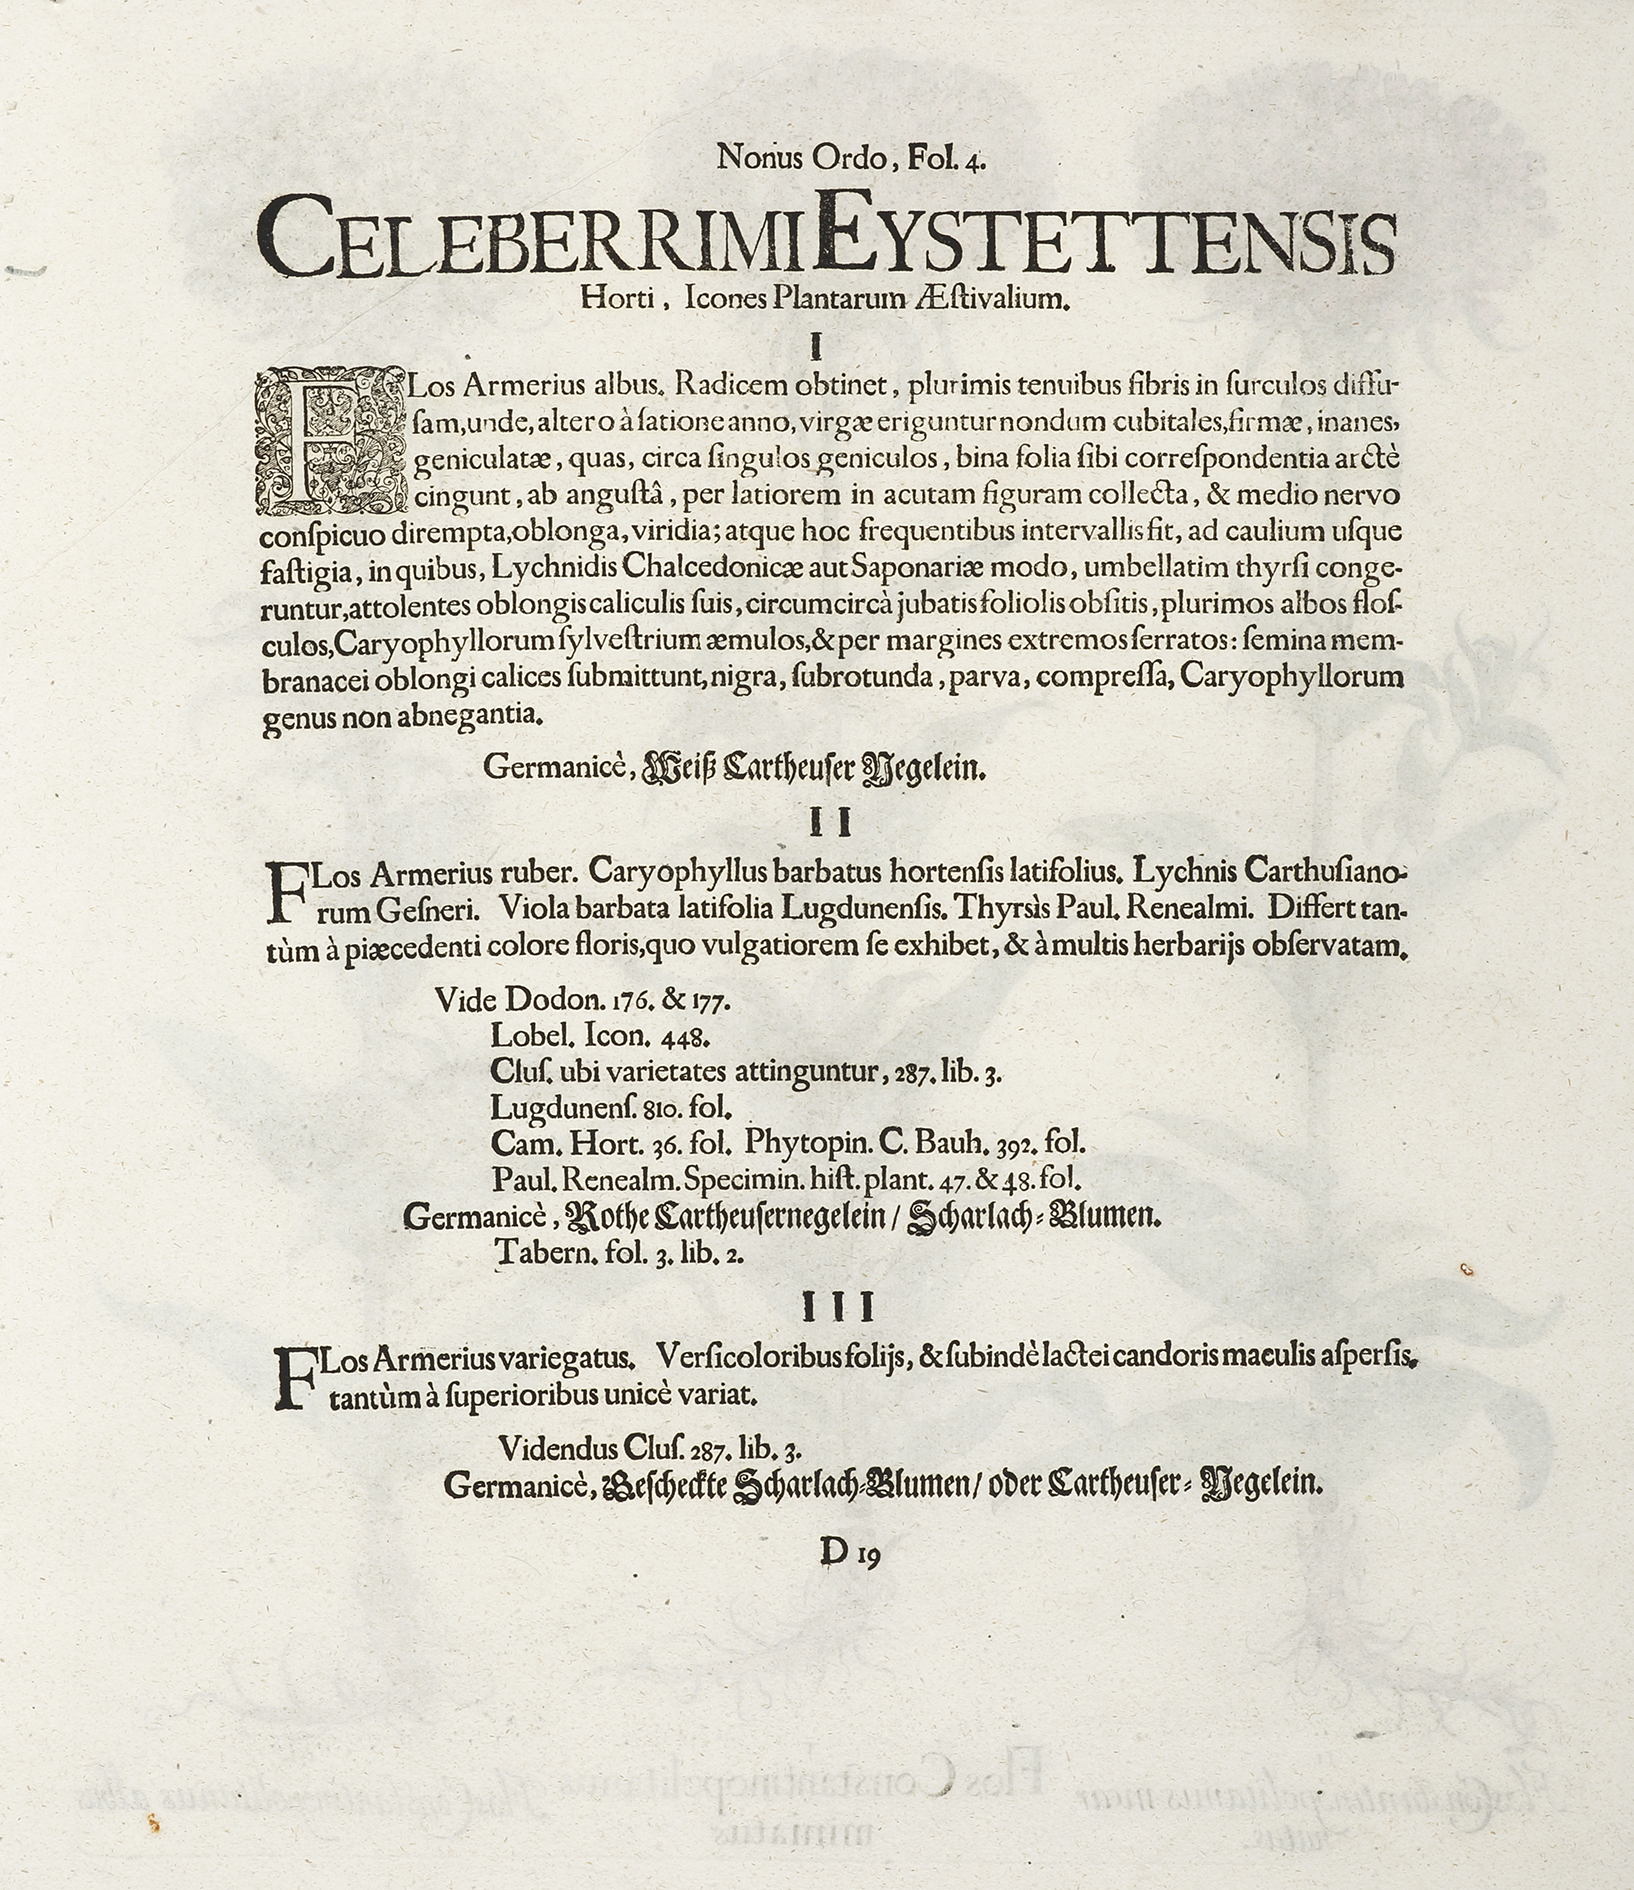 Nonus Ordo, Fol. 4.
CELEBERRIMI EYSTETTENSIS
Horti, Icones Plantarum Æſtivalium.
I
FLos Armerius albus. Radicem obtinet, plurimis tenuibus fibris in ſurculos diffu-
ſam, unde, altero à ſatione anno, virgæ eriguntur nondum cubitales, firmæ, inanes,
geniculatæ, quas, circa ſingulos geniculos, bina folia ſibi correſpondentia arctè
cingunt, ab anguſtâ, per latiorem in acutam figuram collecta, & medio nervo
conſpicuo dirempta, oblonga, viridia; atque hoc frequentibus intervallis fit, ad caulium uſque
faſtigia, in quibus, Lychnidis Chalcedonicæ aut Saponariæ modo, umbellatim thyrſi conge-
runtur, attolentes oblongis caliculis ſuis, circumcircà jubatis foliolis obſitis, plurimos albos floſ-
culos, Caryophyllorum ſylveſtrium æmulos, & per margines extremos ſerratos: ſemina mem-
branacei oblongi calices ſubmittunt, nigra, ſubrotunda, parva, compreſſa, Caryophyllorum
genus non abnegantia.
Germanicè, Weiß Cartheuſer Negelein.
II
FLos Armerius ruber. Caryophyllus barbatus hortenſis latifolius. Lychnis Carthuſiano-
rum Geſneri. Viola barbata latifolia Lugdunenſis. Thyrsis Paul. Renealmi. Differt tan-
tùm à piæcedenti colore floris, quo vulgatiorem ſe exhibet, & à multis herbarijs obſervatam.
Vide Dodon. 176. & 177.
Lobel. Icon. 448.
Cluſ. ubi varietates attinguntur, 287. lib. 3.
Lugdunenſ. 810. fol.
Cam. Hort. 36. fol. Phytopin. C. Bauh. 392. fol.
Paul. Renealm. Specimin. hiſt. plant. 47. & 48. fol.
Germanicè, Rothe Cartheuſernegelein / Scharlach-Blumen.
Tabern. fol. 3. lib. 2.
III
FLos Armerius variegatus. Verſicoloribus folijs, & ſubindè lactei candoris maculis aſperſis,
tantùm à ſuperioribus unicè variat.
Videndus Cluſ. 287. lib. 3.
Germanicè, Geſcheckte Scharlach-Blumen / oder Cartheuſer-Negelein.
D 19
Flos Constantinopolitanus albus
Flos Constantinopolitanus
miniatus